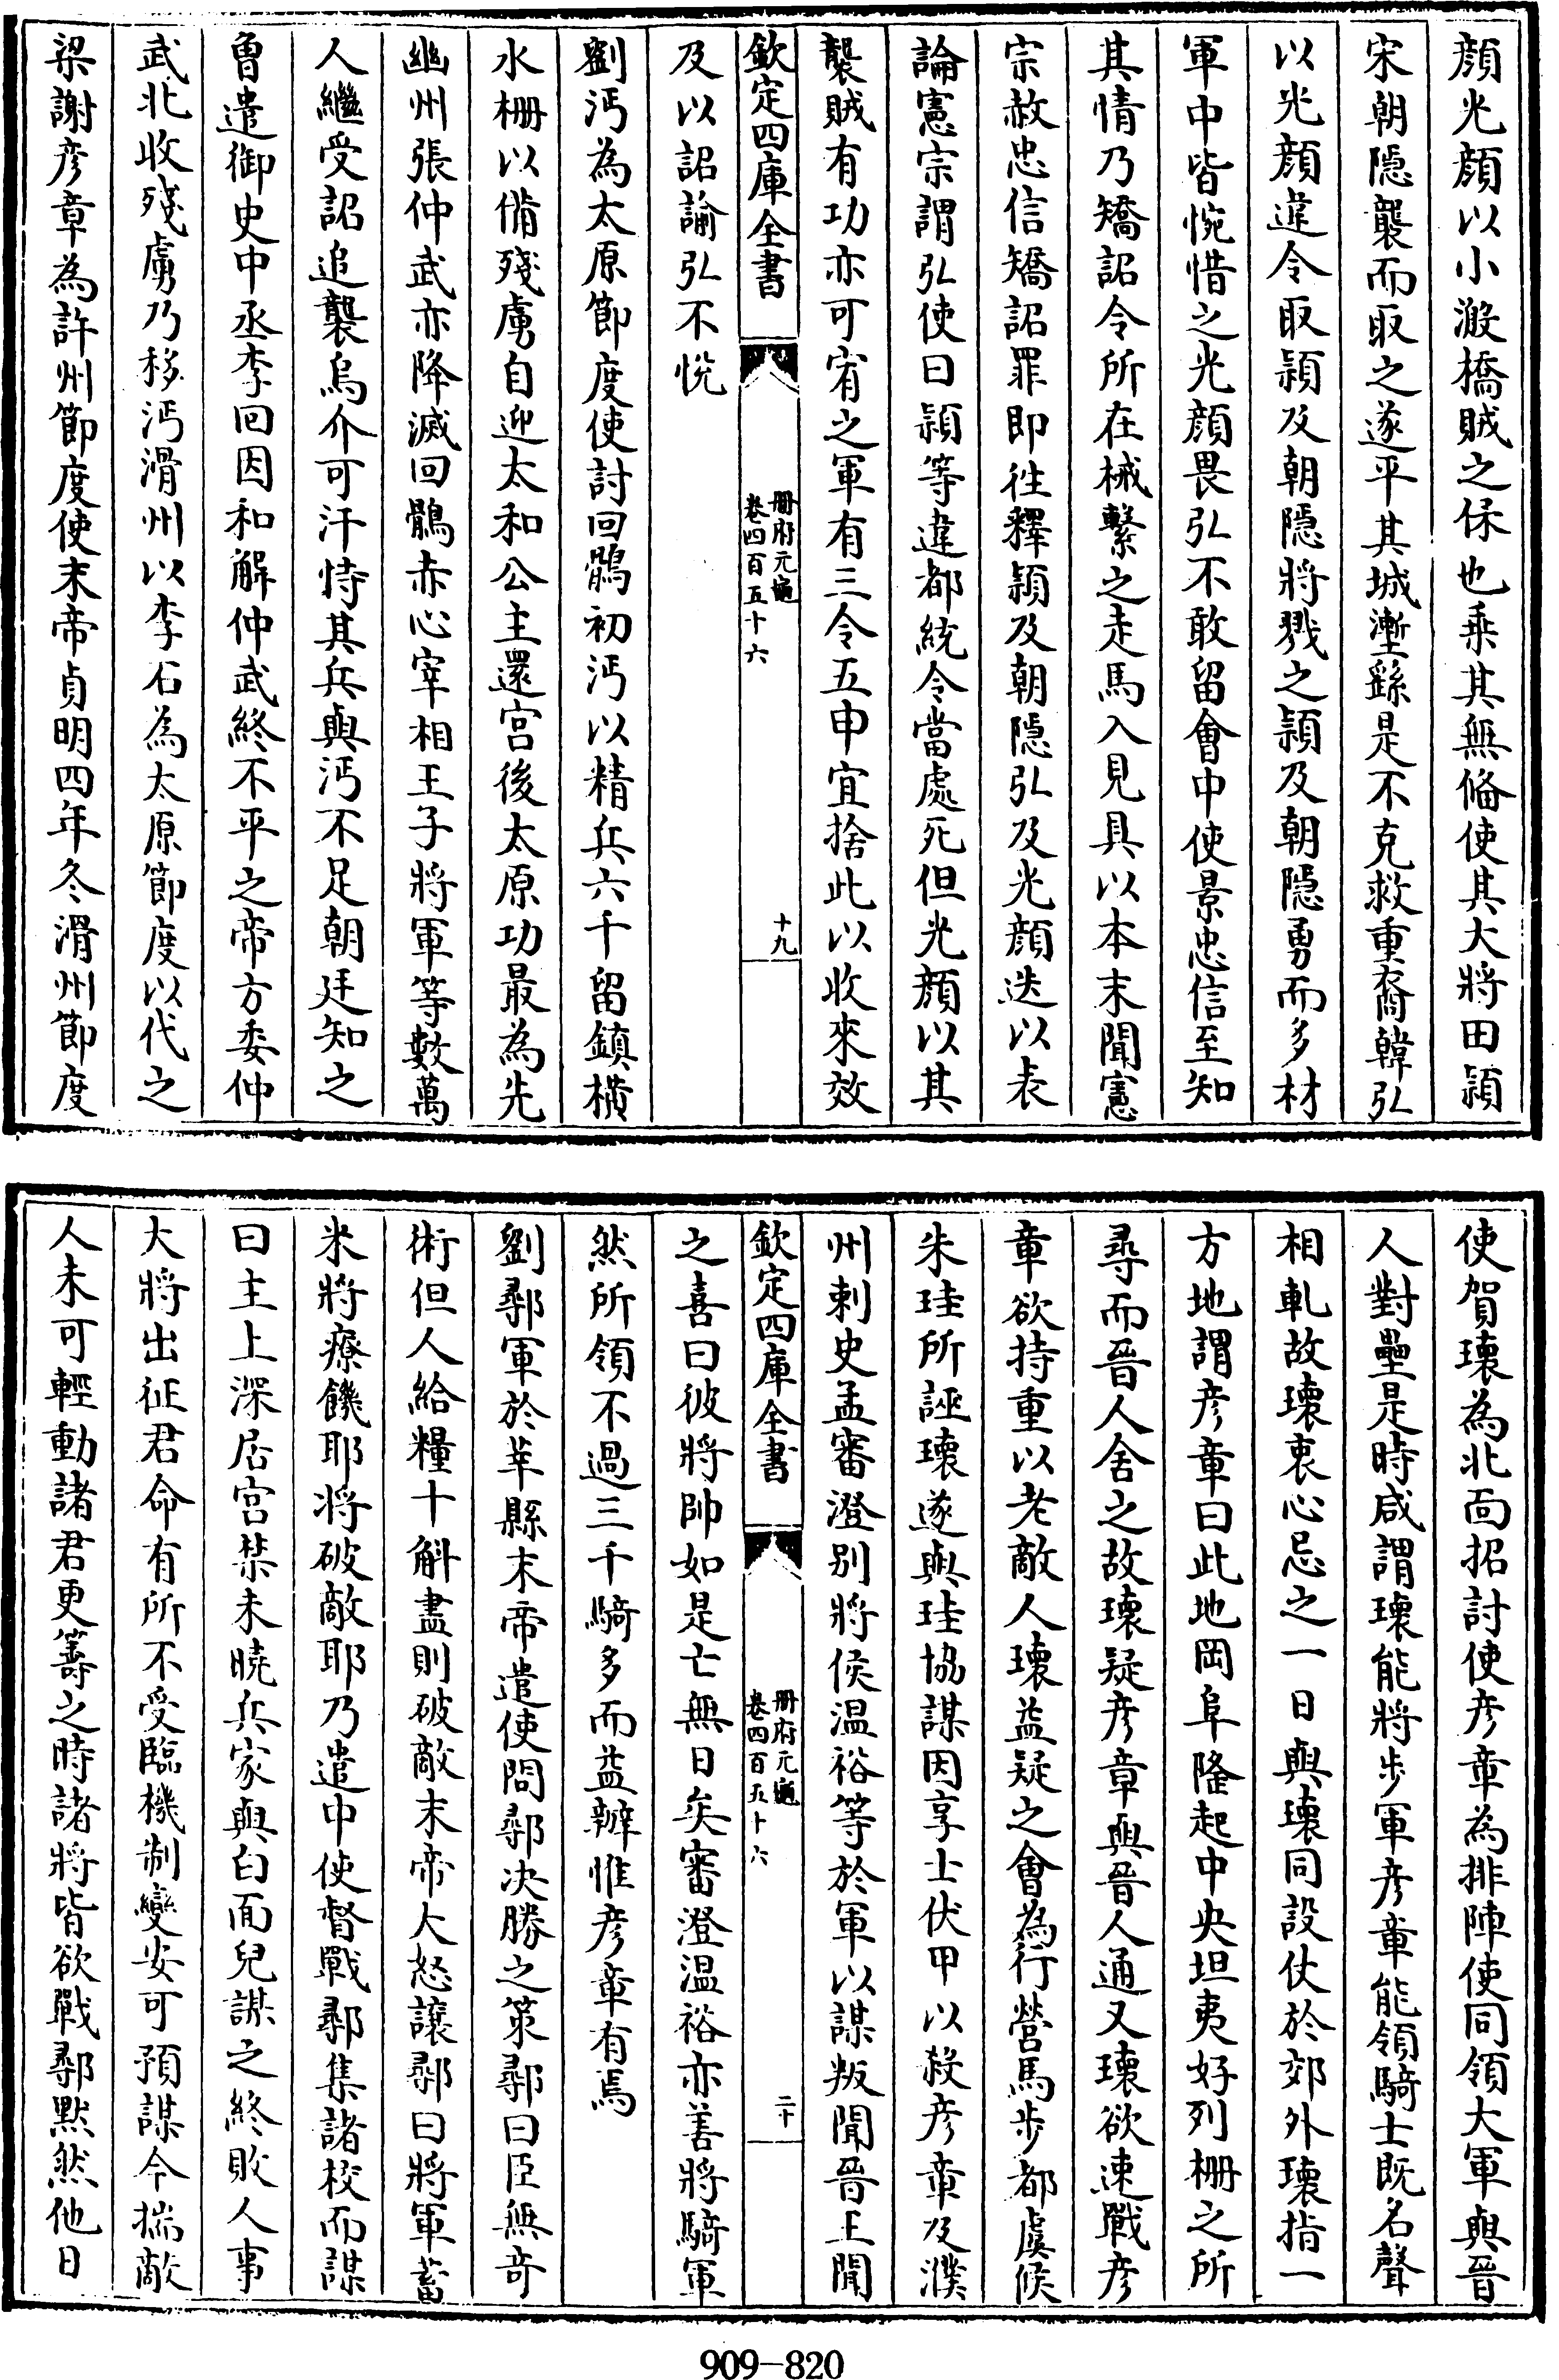 顔光顔以小溵橋賊之保也乗其無備使其大將田潁
宋朝隱襲而取之遂平其城塹繇是不克救重裔韓弘
以光顔違令取潁及朝隱將戮之潁及朝隱勇而多材
軍中皆惋惜之光顔畏弘不敢留會中使景忠信至知
其情乃矯詔令所在械繫之走馬入見具以本末聞憲
宗赦忠信矯詔罪即往釋潁及朝隱弘及光顔迭以表
論憲宗謂弘使曰潁等違都統令當處死但光顔以其
襲賊有功亦可宥之軍有三令五申宜捨此以收來效
欽定四庫全書 冊府元龜 卷四百五十六 十九
及以詔諭弘不悅
劉沔為太原節度使討回鶻初沔以精兵六千留鎮横
水柵以備殘虜自迎太和公主還宫後太原功最為先
幽州張仲武亦降滅回鶻赤心宰相王子將軍等數萬
人繼受詔追襲烏介可汗恃其兵與沔不足朝廷知之
曾遣御史中丞李回因和解仲武終不平之帝方委仲
武北收殘虜乃移沔滑州以李石為太原節度以代之
梁謝彦章為許州節度使末帝貞明四年冬滑州節度
使賀瓌為北面招討使彦章為排陣使同領大軍與晉
人對壘是時咸謂瓌能將步軍彦章能領騎士既名聲
相軋故瓌衷心忌之一日與瓌同設伏於郊外瓌指一
方地謂彦章曰此地岡阜隆起中央坦夷好列柵之所
尋而晉人舍之故瓌疑彦章與晉人通又瓌欲速戰彦
章欲持重以老敵人瓌益疑之會為行營馬步都虞候
朱珪所誣瓌遂與珪協謀因享士伏甲以殺彦章及濮
州刺史孟審澄别將侯温裕等於軍以謀叛聞晉王聞
欽定四庫全書 冊府元龜 卷四百五十六 二十
之喜曰彼將帥如是亡無日矣審澄温裕亦善將騎軍
然所領不過三千騎多而益辦惟彦章有焉
劉鄩軍於莘縣末帝遣使問鄩决勝之策鄩曰臣無奇
術但人給糧十斛盡則破敵末帝大怒讓鄩曰將軍蓄
米將療饑耶将破敵耶乃遣中使督戰鄩集諸校而謀
曰主上深居宫禁未曉兵家與白面兒謀之終敗人事
大將出征君命有所不受臨機制變安可預謀今揣敵
人未可輕動諸君更籌之時諸將皆欲戰鄩黙然他日
909-820